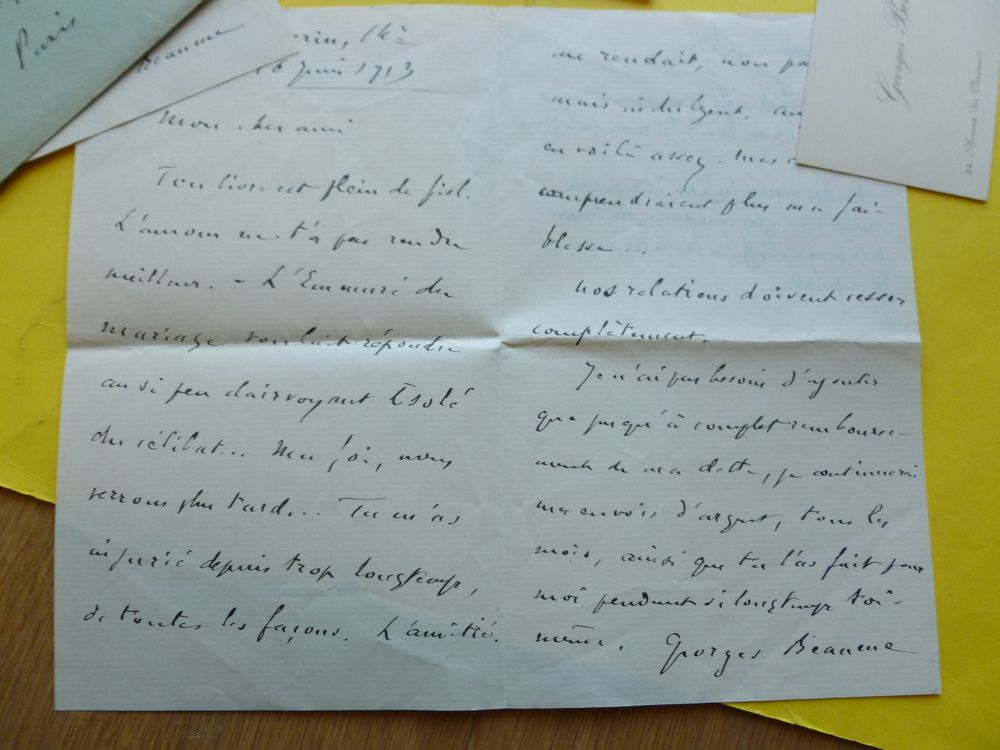 Paris
Beaume
rin, 14e
6 Juin 1913
Mon cher ami
Ton livre est plein de fiel.
L'amour ne t'a pas rendu
meilleur. - L'Emmuré du
mariage voulait répondre
au si peu clairvoyant Isolé
du célibat... Ma foi, nous
verrons plus tard... Tu m'as
injurié depuis trop longtemps,
de toutes les façons. L'amitié
me rendait, non pa
mais indulgent.
en voilà assez. Mes
comprendraient plus ma fai-
blesse...
Nos relations doivent cesser
complètement.
Je n'ai pas besoin d'ajouter
que jusqu'à complet rembourse-
ment de ma dette, je continuerai
mes envois d'argent, tous les
mois, ainsi que tu l'as fait pour
moi pendant si longtemps toi-
même. Georges Beaume
Georges Be